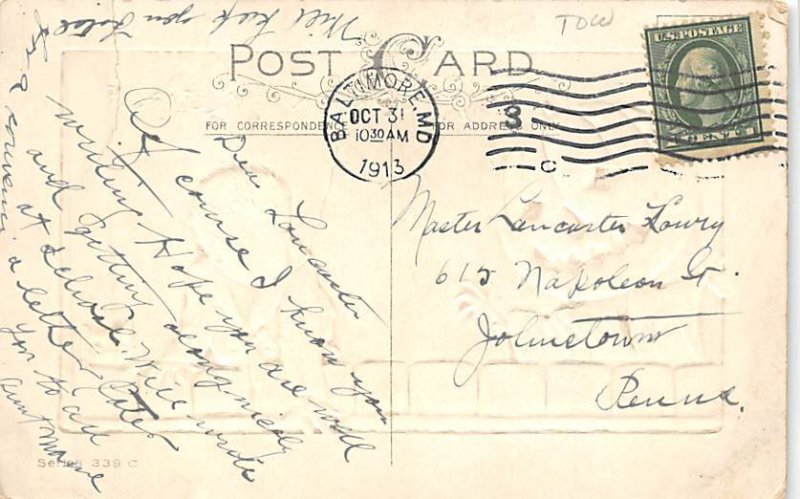 POST CARD
FOR CORRESPONDENCE
FOR ADDRESS ONLY
BALTIMORE, MD
OCT 31
10 30 AM
1913
3
C
U.S. POSTAGE
TOW
Master Lancaster Lowry
612 Napoleon St.
Johnstown
Penna.
Dear Lancaster
Of course I know you
writing Hope you are well
and getting along nicely
at School. Will write
a letter later
you to all
Aunt
Will keep you
Series 339 C